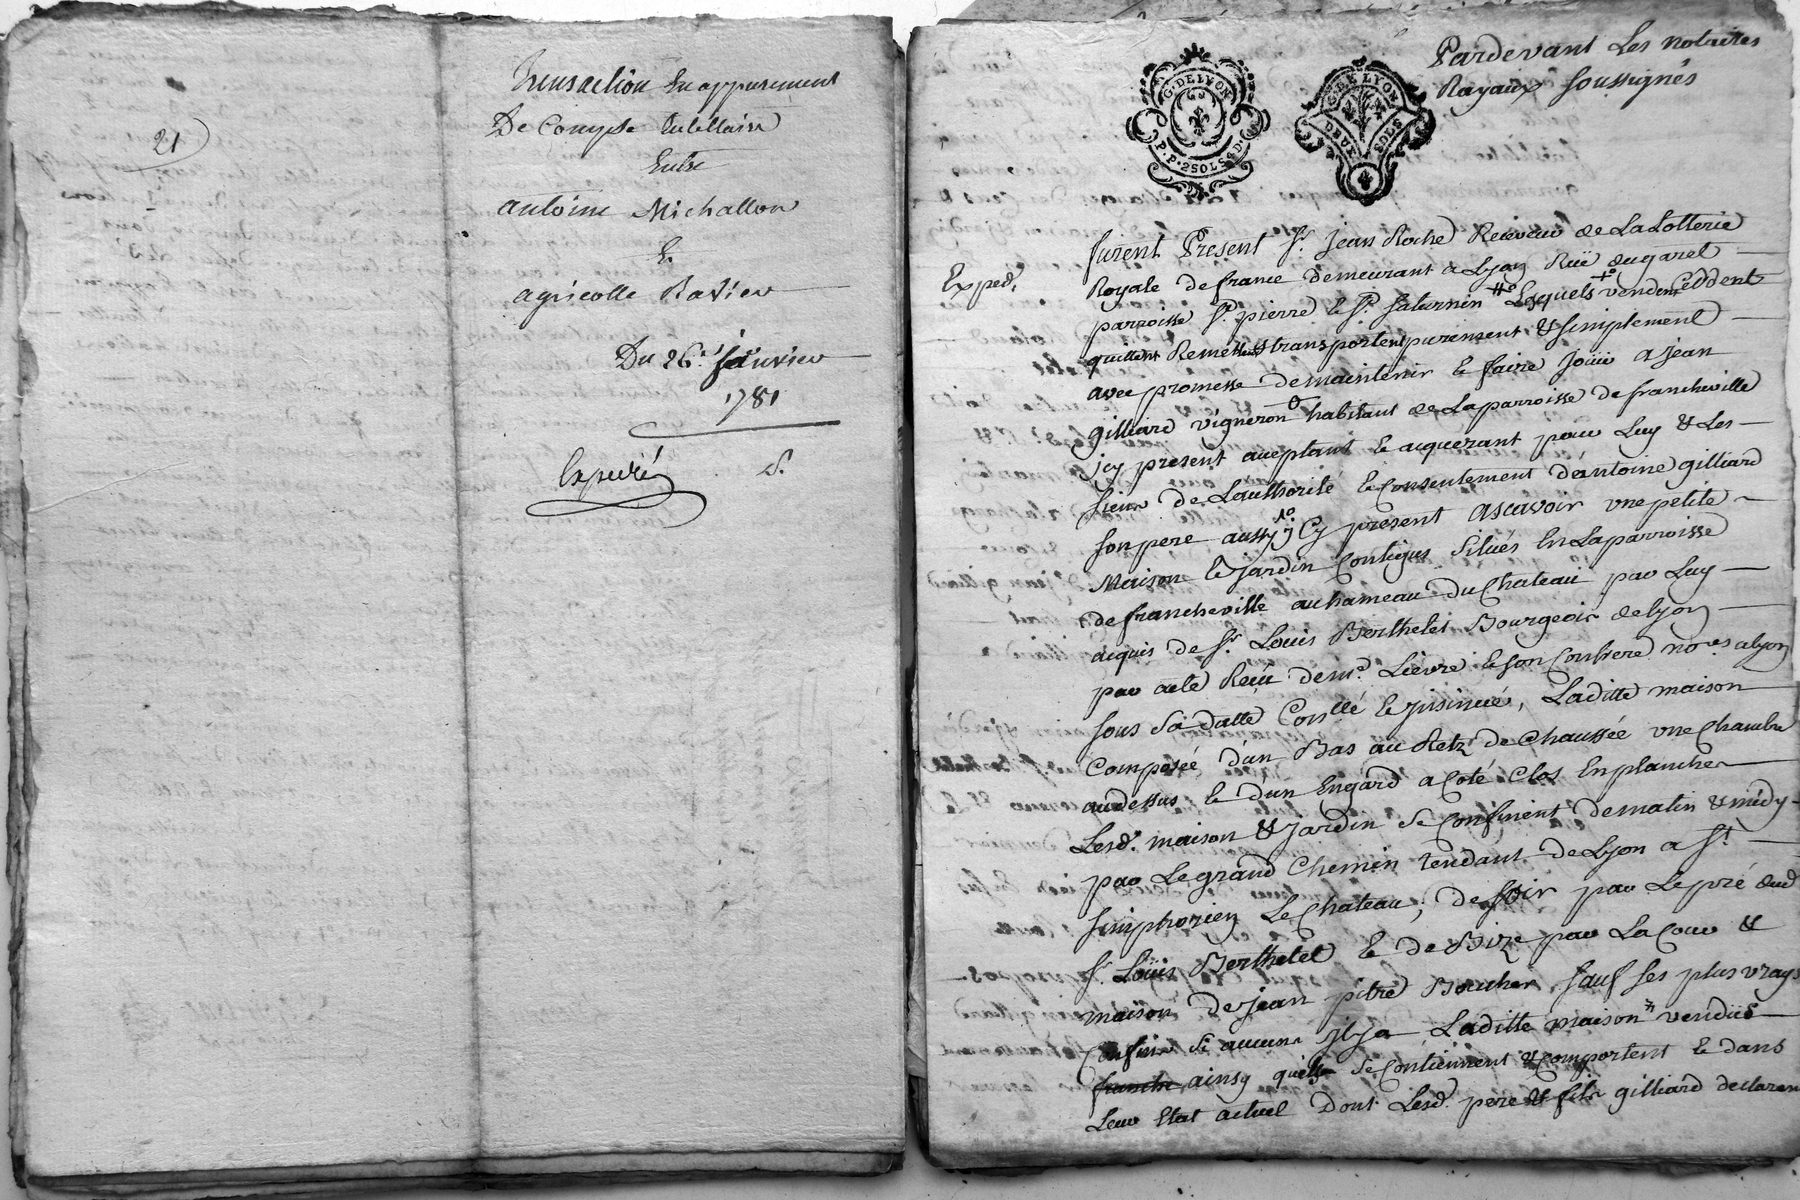 21
Transaction En appurement
De Compte tutellaire
Entre
antoine Michallon
Et
agricolle Ravier
Du 26.e janvier
1781
Expedié
G. DE LYON
P.P. 2SOLS4D.
G. DE LYON
DEUX SOLS
Pardevant Les notaires
Royaux soussignés
Exped.
furent Present Sr. jean Roche Receveur de La Lotterie
Royale de france demeurant a Lyon Ruë dugaret
parroisse St. pierre le St. Saturnin Lesquels vendent Ceddent
quittent Remettent & transportent purement & simplement
avec promesse de maintenir & faire Joüir a jean
gilliard vigneron habitant de La parroisse de francheville
jcy present acceptant & acquerant pour Luy & Les
siens de Lauthorité & Consentement d'antoine gilliard
son pere aussy jCy present Ascavoir une petite
Maison & jardin Contigus Situés En Laparroisse
de francheville au hameau du Chateau par Luy
acquis de Sr. Louis Berthelet Bourgeois de lyon
par acte Reçu de me. Lievre & son Confrere no.res a lyon
sous Sa datte Conllé & jnsinué, Laditte maison
Composée d'un Bas au Retz de Chaussée une Chambre
au dessus & d'un Engard a Coté Clos En planches
Lesd. maison & jardin Se Confinent de matin & midy
par Le grand Chemin tendant de Lyon a St.
Simphorien Le Chateau, de soir par Le pré dud
Sr. Loüis Berthelet & de Bize par La Cour &
maison de jean pitre Boucher sauf ses plus vrays
Confins Si aucuns jl y a Laditte maison vendüe
franche ainsy quelle Se Contiennent & Comportent & dans
Leur Etat actuel Dont Lesd. pere & fils gilliard declarent